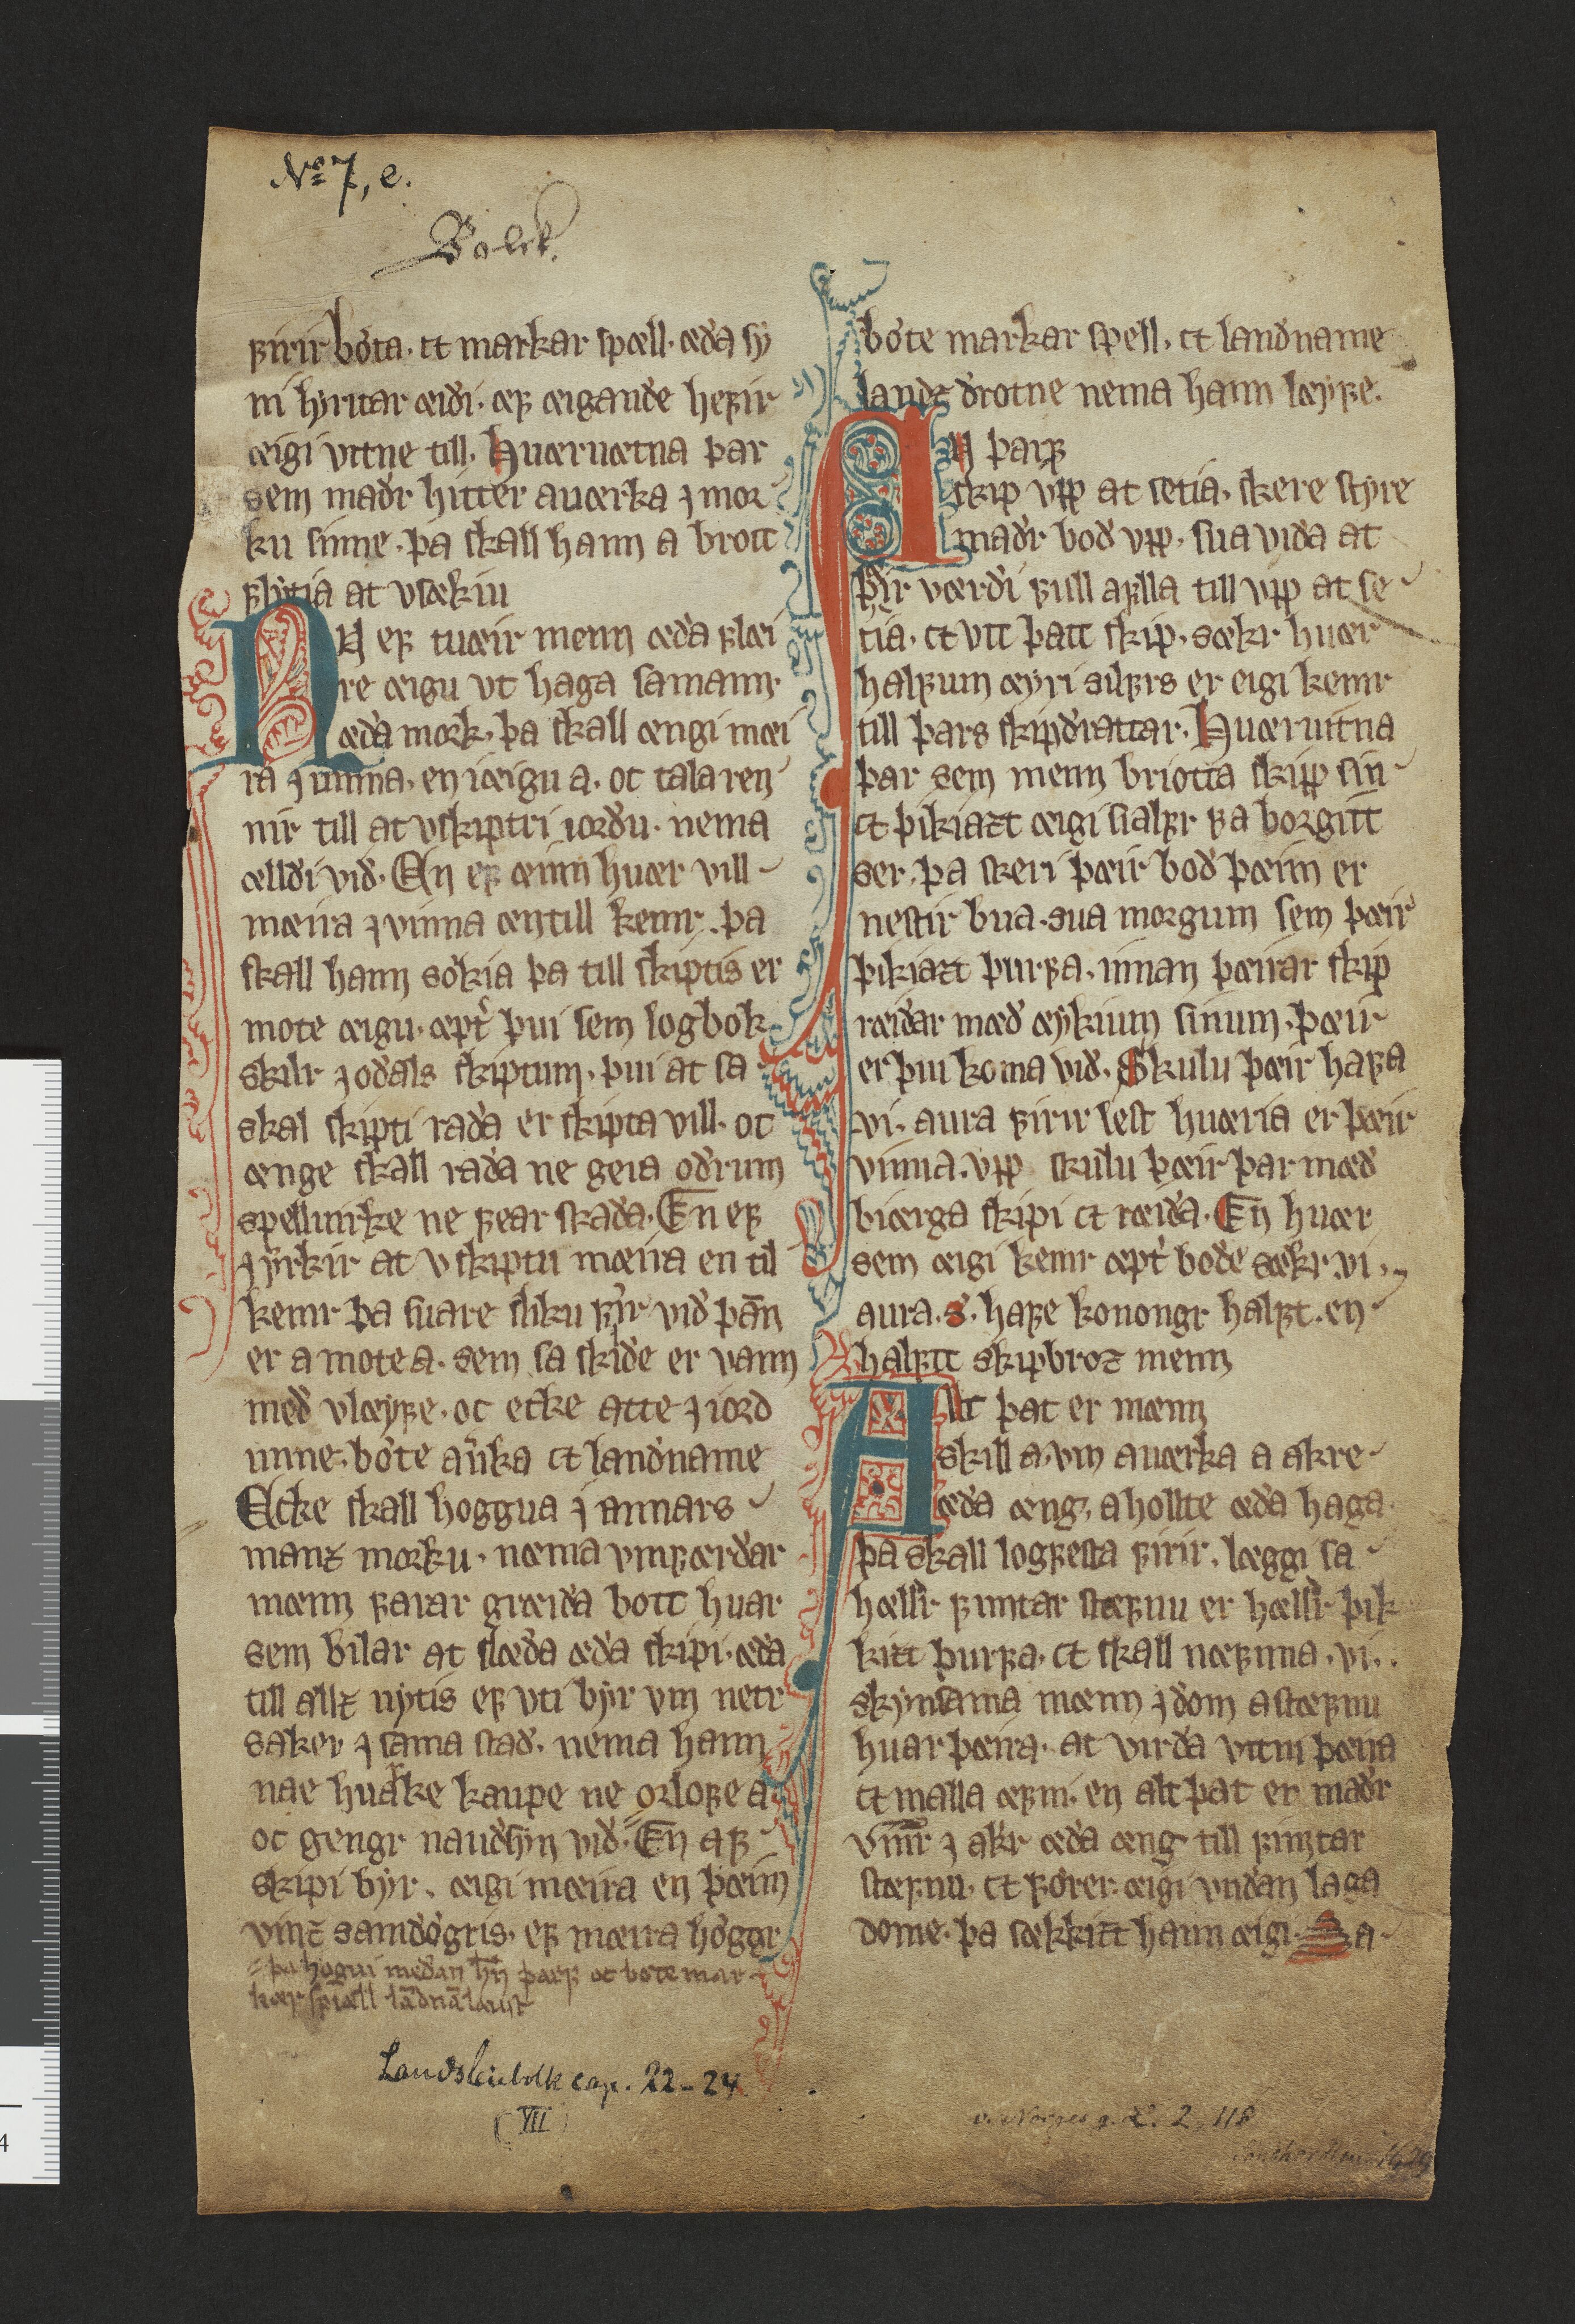 No 7, e.
Bolck.
firir bóta. ct markar spæll. æða sy
ni hyrtar æiði. æf æigande hefir
æigi vitne till. Huæruætna þar
sem maðr hitter auærka ȷ mor
ku sinne. þa skall hann a brott
flytia at vsækiu
NV ef tuæir menn æða flæi
re æigu vt haga samann.
æða mork. þa skall ængi mæi
ra ȷ uinna. en iæigu a. oc tala ren
nir till at vskiptri iorðu. nema
ælldi við. En ef æinn huær vill
mæira ȷ vinna æn till kemr. þa
skall hann sókia þa till skiptis er
mote æigu. æptir þui sem logbok
skilr ȷ oðals skiptum. þui at sa
skal skipti raða er skipta vill. oc
ænge skall raða ne gera oðrum
spelluirke ne fear skaða. En ef
ȷ yrkir at vskiptu mæira en til
kemr þa suare sliku fyr við þann
er a mote a. sem sa skide er vann
með vlæyfe. oc ecke atte ȷ iord
unne. bóte auerka ct landname
Ecke skall hoggua ȷ annars
manz morku. næma vmfærðar
mænn farar græiða bott huar
sem bilar at slæða æða skipi. æða
till allz nytis ef vti byr vm netr
saker ȷ sama stað. nema hann
nae huarke kaupe ne orlofe a
oc gengr nauðsyn við. En af
skipi byr. æigi mæira en þæim
vinz samdógris. ef mæira hóggr
þa hogui meðan hann þarf oc bote mar
kær spiæll landnamlaust
Landsleiebolk cap. 22-24
(VII)
bóte markar spell. ct landname
landz drotne nema hann læyfe.
NV þarf
skip vpp at setia. skere styre
maðr boð vpp. sua viða at
þeir værði full aflla till vpp at se
tia. ct vtt þatt skip. sækr huær
halfum æyri silfrs er eigi kemr
till þars skipdrattar. Huæruitna
þar sem menn briotta skipp sin
ct þikiazt æigi sialfir fa borgitt
ser. þa skeri þæir boð þæim er
nestir bua. sua morgum sem þæir
þikiazt þurfa. innan þæirar skip
ræiðar mæð æykium sinum. þæir
er þui koma við. Skulu þæir hafa
vi. aura firir lest huæria er þæir
vinna. vpp skulu þæir þar mæð
biærga skipi ct ræiða. En huær
sem æigi kemr æptir boðe sækr. vi.
aura. s. hafe konongr halft. en
halftt skipbroz menn
Alt þat er mænn
skill a. vm auærka a akre
æða æng. a hollte æða haga.
þa skall logfesta firir. læggi sa
hællir fimtar stæfnu er hællir þik
kizt þurfa. ct skall næfnna. vi.
skynsama mænn ȷ dom a stæfnu
huar þæira. at virða vitni þæira
ct malla æfni. en alt þat er maðr
vinnr ȷ akr æða æng till fimtar
stæfnu. ct fórer æigi vndan laga
dome. þa sækkizt hann æigi. Sa
v. Norges g. L. 2, 118